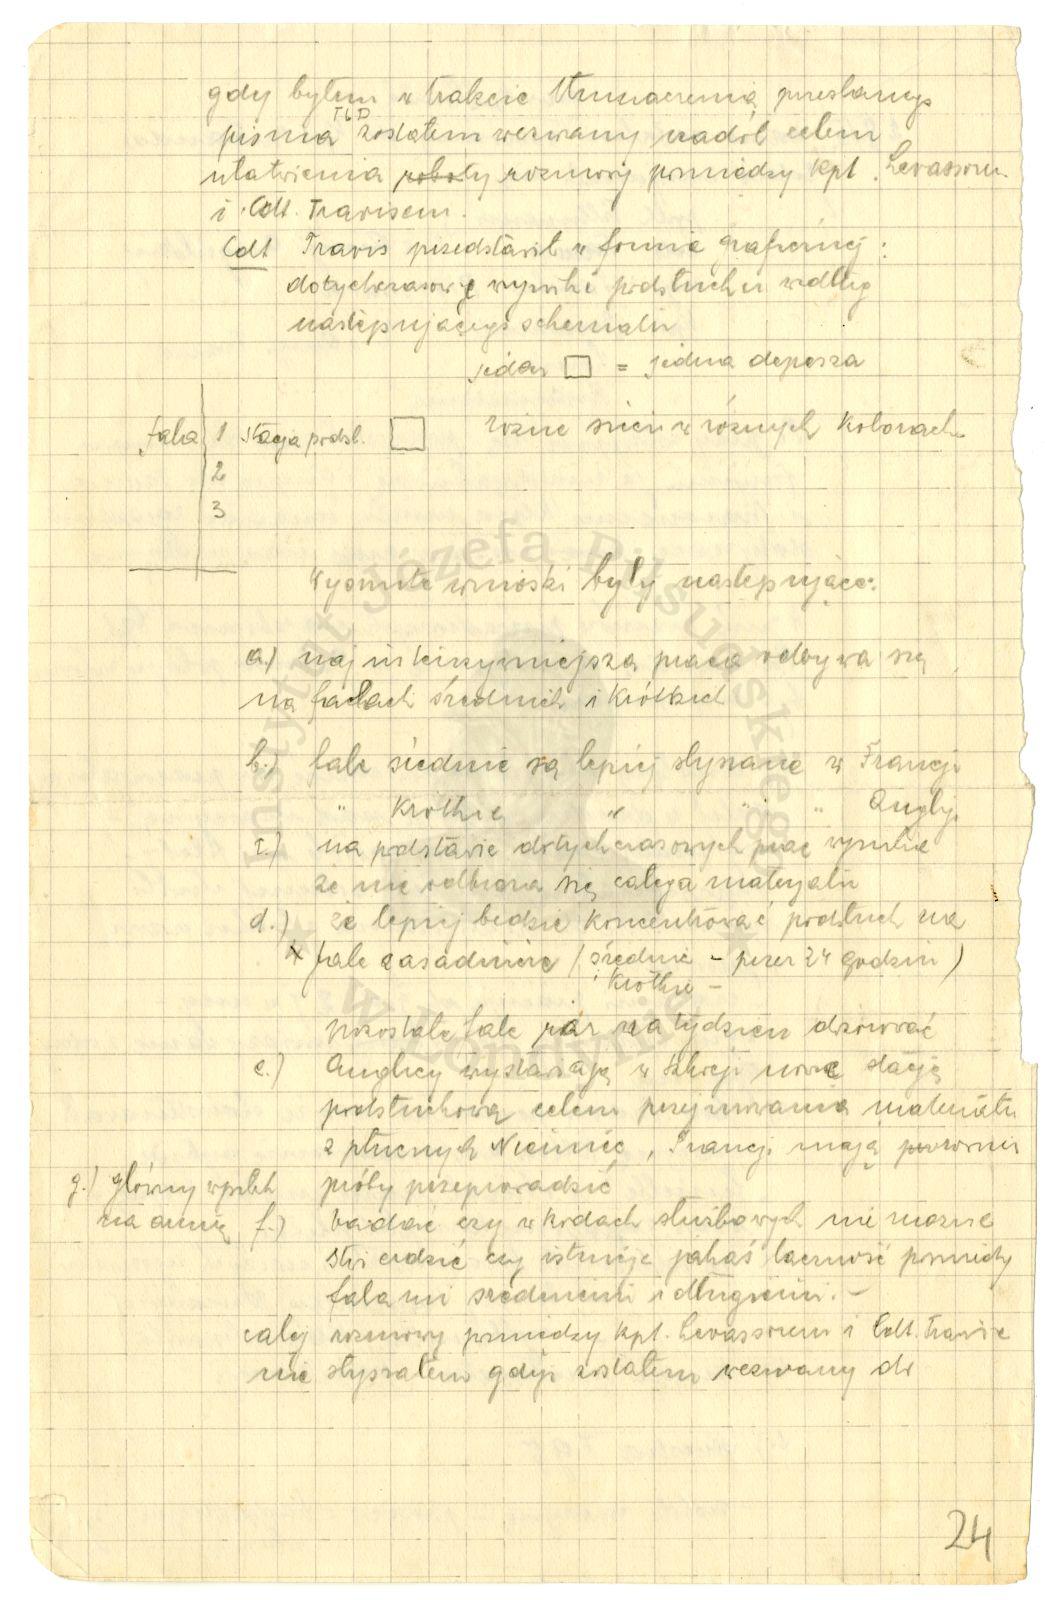 gdy byłem w trakcie tłumaczenia przesłanego
TLD
pisma zostałem wezwany nadół celem
ułatwienia roboty rozmowy pomiędzy kpt. Levassorem
i Cdt. Travisem.
Cdt Travis przedstawił w formie graficznej:
dotychczasowe wyniki podsłuchu według
następującego schematu
jeden = jedna depesza
fala 1 stacja podsł. różne sieci w różnych kolorach
2
3
Wysnute wnioski były następujące:
a.) najintenzywniejsza praca odbywa się
na falach średnich i krótkich
b.) fale średnie są lepiej słyszane w Francji
" krótkie " " " Anglji
c.) na podstawie dotychczasowych prac wynika
że nie odbiera się całego materjału
d.) że lepiej będzie koncentrować podsłuch na
x fale zasadnicze (średnie - przez 24 godzin)
i krótkie -
pozostałe fale raz na tydzień dozorować
e.) Anglicy wystawiają w Szkocji nową stację
podsłuchową celem przejmowania materiału
z północnych Niemiec, Francuzi mają ponownie
próby przeprowadzić
g.) główny wysiłek
na armię
f.) badać czy w kodach służbowych nie można
stwierdzić czy istnieje jakaś łączność pomiędzy
falami średniemi i długiemi. -
całej rozmowy pomiędzy kpt. Levassorem i Cdt. Travis
nie słyszałem gdyż zostałem wezwany do
24
Instytut Józefa Piłsudskiego
w Londynie